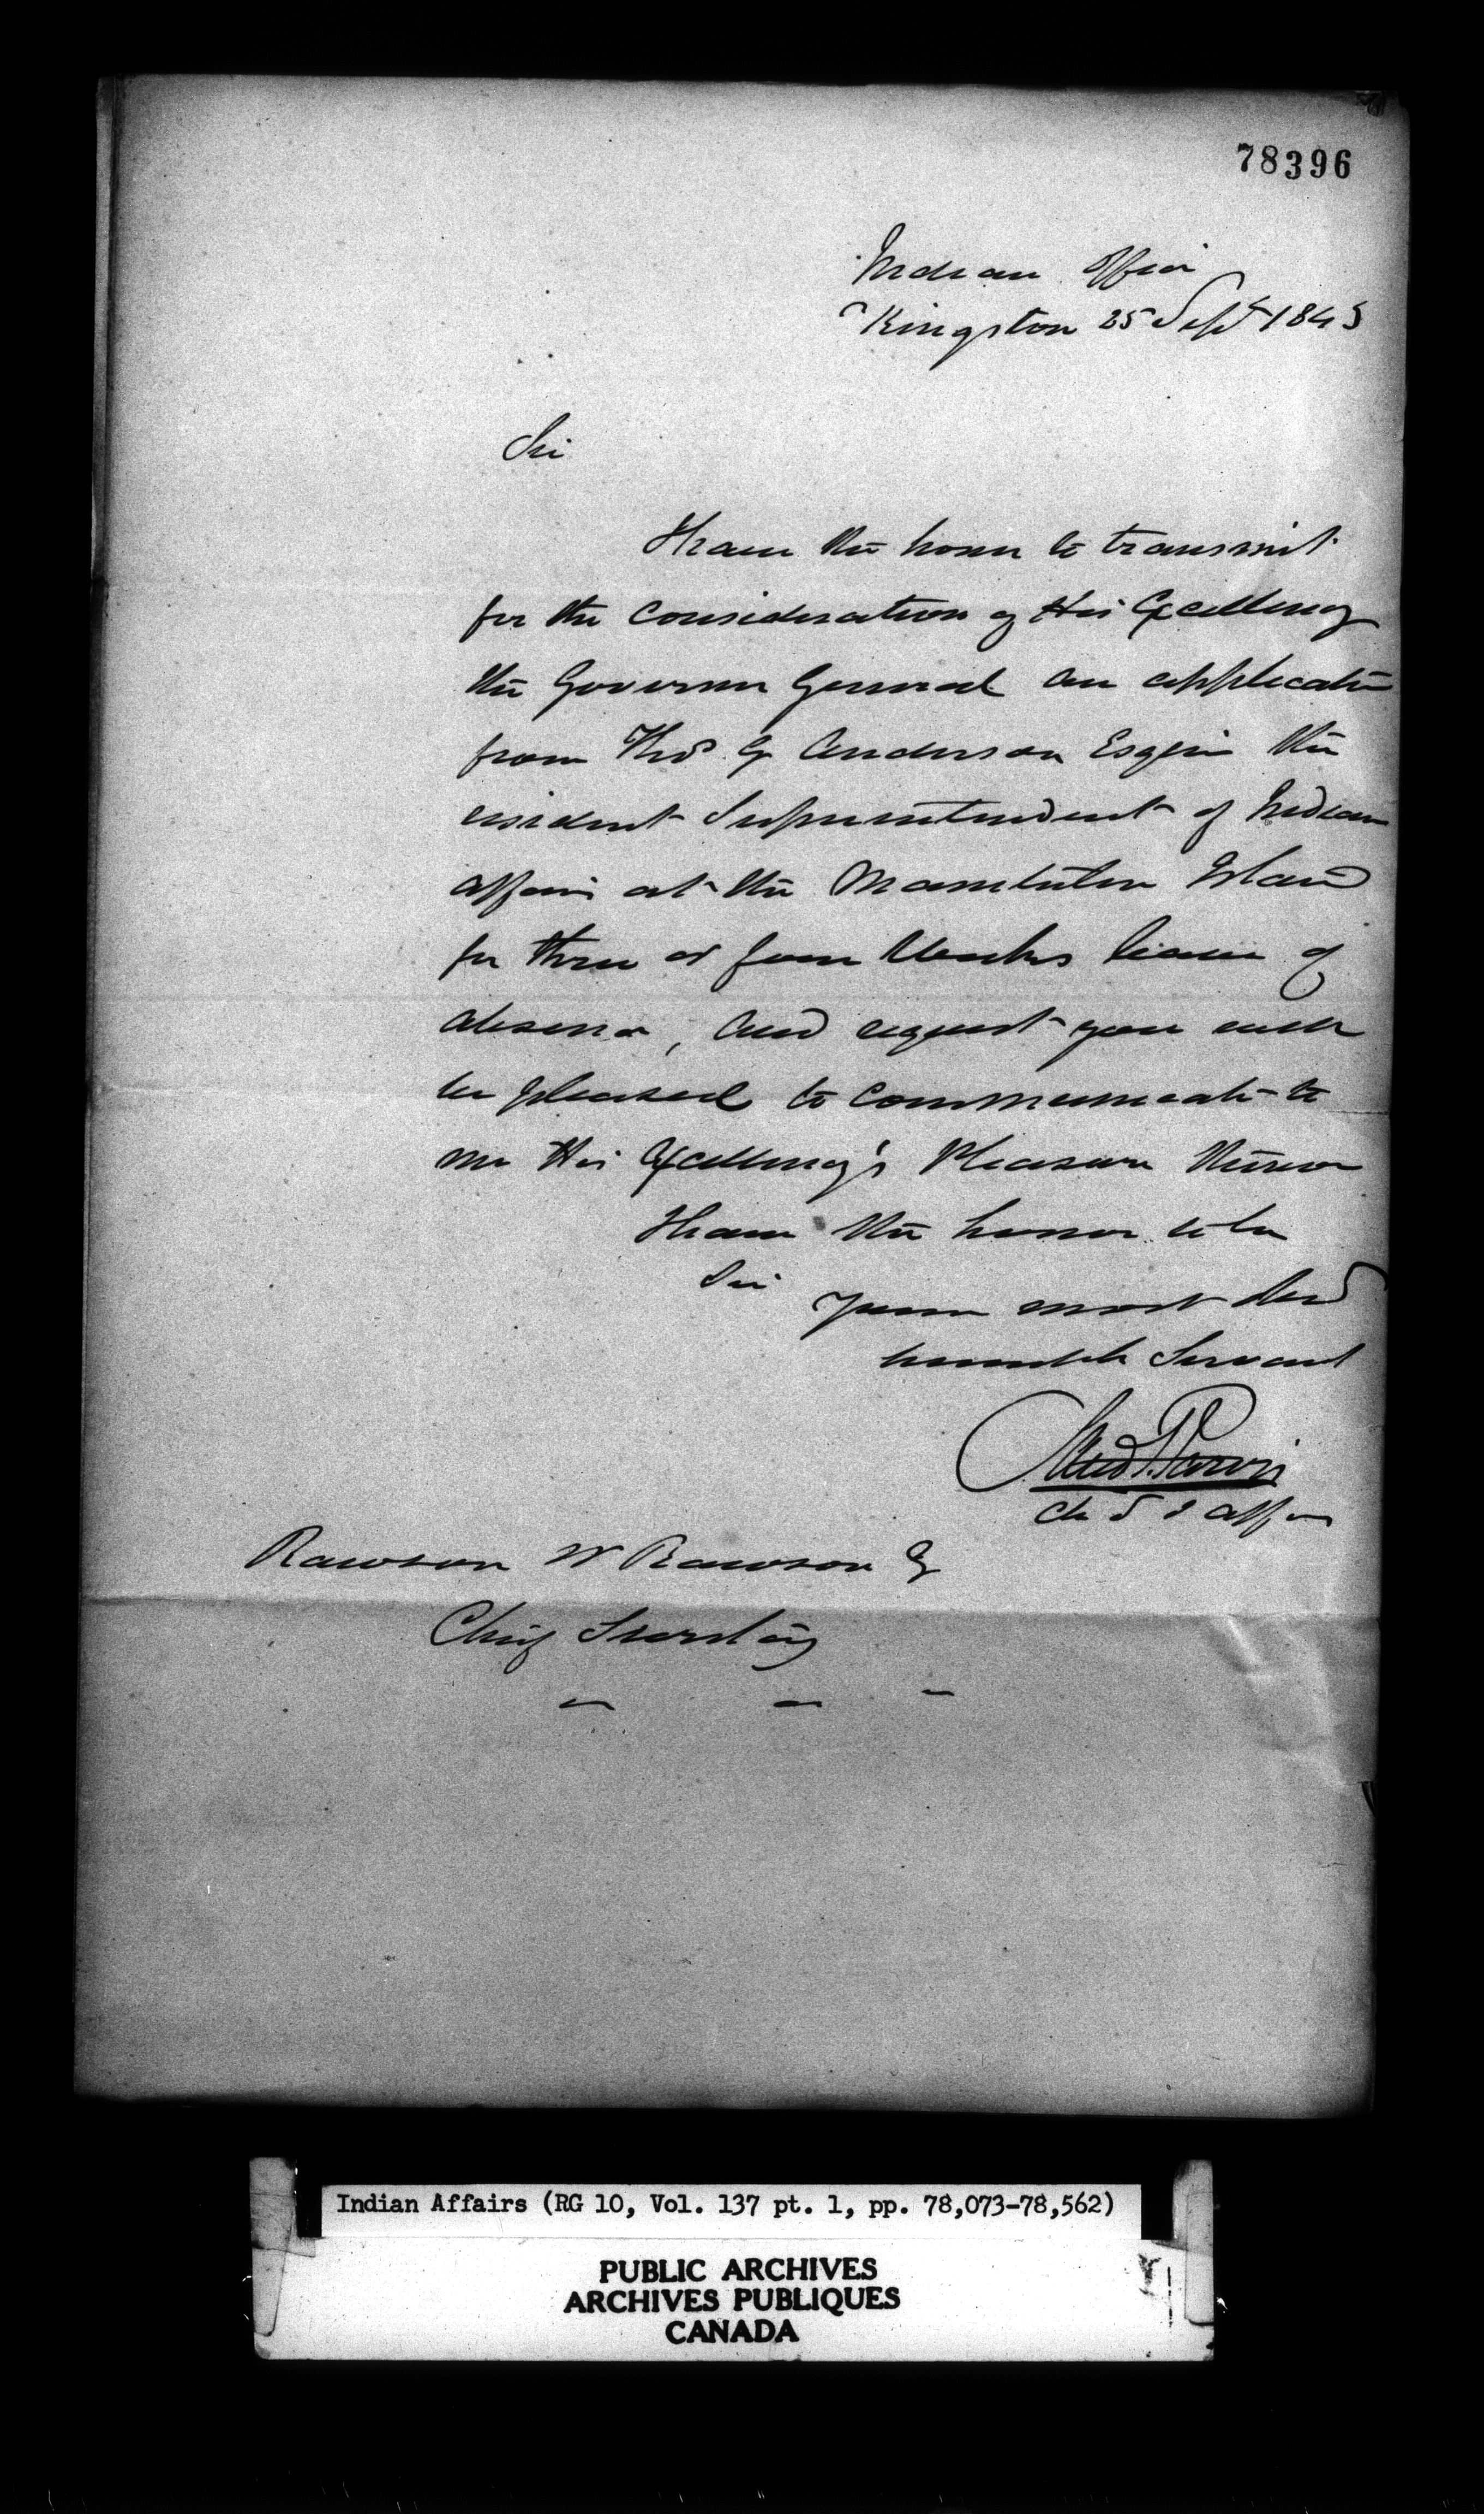 78396
Indian Office
Kingston 25 Sept 1843
Sir
I have the honor to transmit
for the consideration of His Excellency
the Governor General an application
from Thos G Anderson Esquire the
resident Superintendent of Indian
affairs at the Manitoulin Island
for three or four Weeks leave of
absence, and request you will
be pleased to communicate to
me His Excellency's Pleasure thereon
I have the honor to be
Sir
Your most obed
humble Servant
Saml P. Jarvis
Rawson W Rawson Esq
Chief Secretary
Indian Affairs (RG 10, Vol. 137 pt. 1, pp. 78,073-78,562)
PUBLIC ARCHIVES
ARCHIVES PUBLIQUES
CANADA